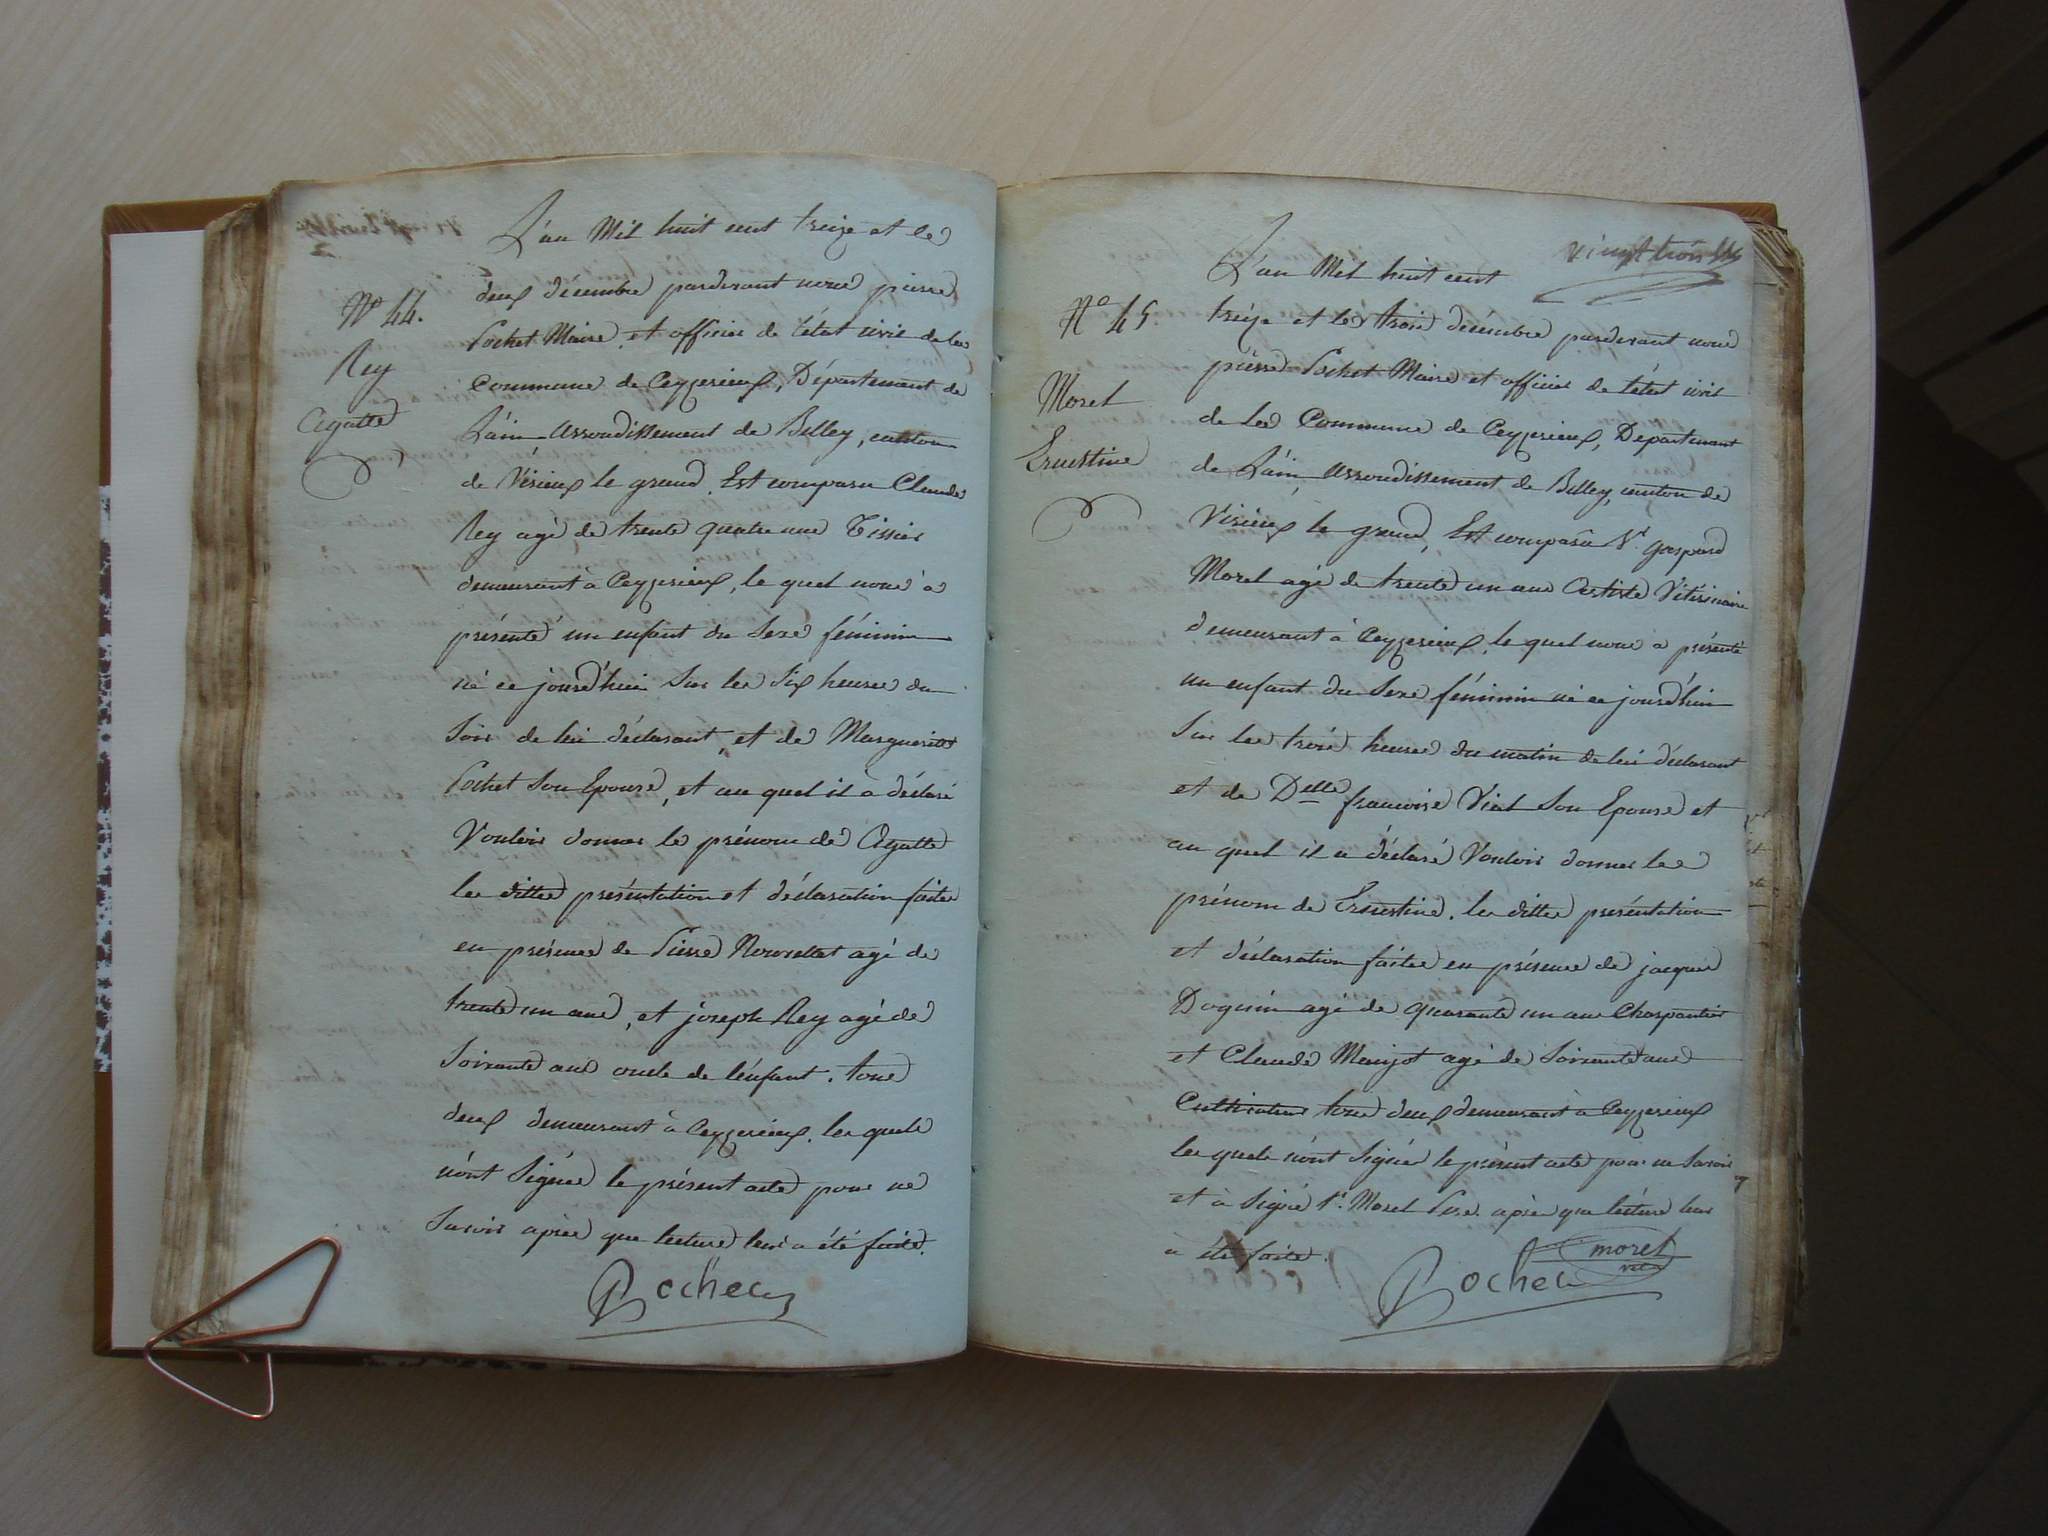 L'an Mil huit cent treize et le
deux décembre pardevant nous pierre
Pochet Maire et officier de l'état civil de la
Commune de Ceyzerieux, Département de
L'ain arrondissement de Belley, canton
de Virieux le grand, Est comparu Claude
Rey agé de trente quatre ans Tissier
demeurant à Ceyzerieux, le quel nous a
présenté un enfant du Sexe féminin
né ce jourd'hui Sur les Six heures du
Soir de lui déclarant, et de Marguerite
Pochet Son Epouse, et au quel il à déclaré
Vouloir donner le prénom de Agatte
la ditte présentation et déclaration faite
en présence de Pierre agé de
trente un ans, et joseph Rey agé de
Soixante ans oncle de l'énfant. tous
deux demeurant à Ceyzerieux. les quels
n'ont Signés le présent acte pour ne
Savoir après que lecture leur a été faite.
Pochet
N° 44.
Rey
Agatte
vingt trois
L'an Mil huit cent
treize et le trois décembre pardevant nous
pierre Pochet Maire et officier de l'état civil
de la Commune de Ceyzerieux, Département
de L'ain arrondissement de Belley, canton de
Virieux le grand, Est comparu Sr. gaspard
Morel agé de trente un ans Artiste Vétérinaire
demeurant à Ceyzerieux, le quel nous a présenté
un enfant du Sexe féminin né ce jourd'hui
Sur les trois heures du matin de lui déclarant
et de Delle francoise Vial Son Epouse et
au quel il a déclaré Vouloir donner le
prénom de Ernestine. la ditte présentation
et déclaration faite en présence de jacques
Doguin agé de quarante un ans Charpentier
et Claude Manjot agé de Soixante ans
Cultivateur tous deux demeurant à Ceyzerieux
les quels n'ont Signés le présent acte pour ne Savoir
et à Signé Sr. Morel Père après que lécture leur
à été faite.
morel
vete
Pochet
N° 45
Morel
Ernestine